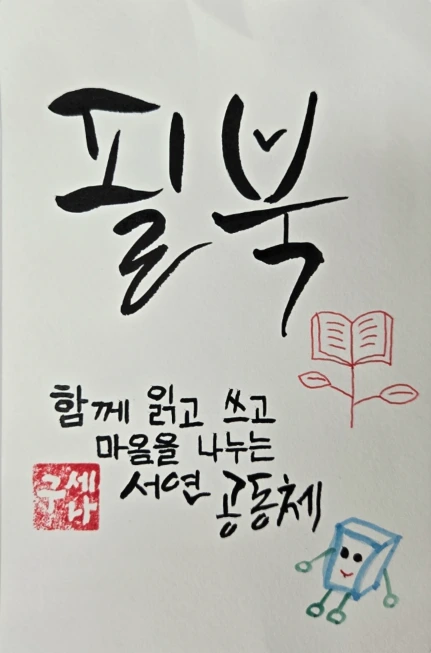 필북
함께 읽고 쓰고
마음을 나누는
서연 공동체
구세나